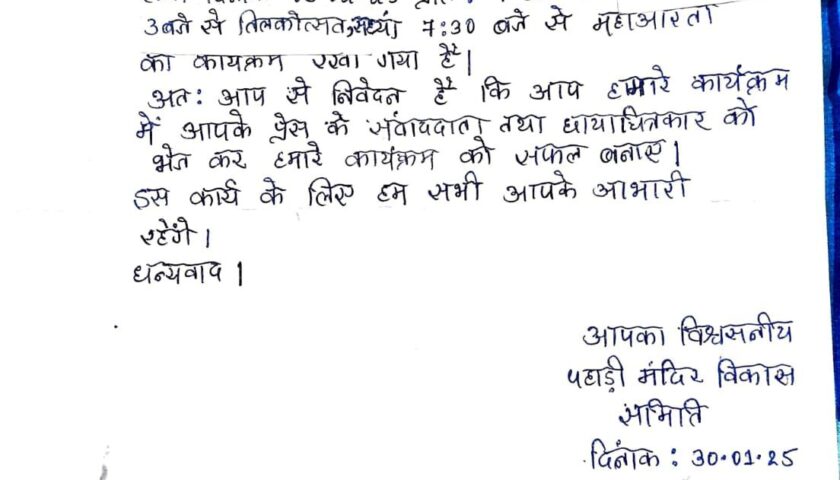 3बजे से तिलकोत्सत, संध्यां 7:30 बजे से महाआरता
का कायक्रम रखा गया है।
अत: आप से निवेदन है कि आप हमारे कार्यक्रम
में आपके प्रेस के संवाददाता तथा छायाचित्रकार को
भेज कर हमारे कार्यक्रम को सफल बनाए।
इस कार्य के लिए हम सभी आपके आभारी
रहेंगे।
धन्यवाद।
आपका विश्वसनीय
पहाड़ी मंदिर विकास
समिति
दिनांक : 30.01.25